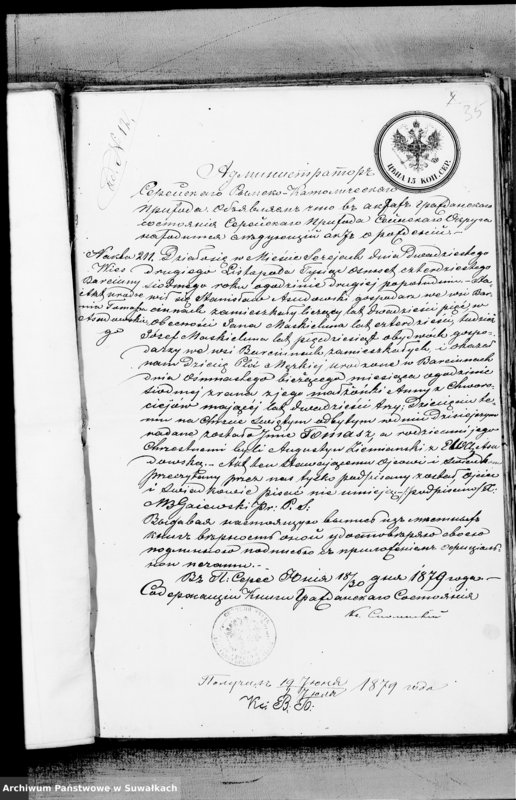 35
Администраторъ
Сейскаго Римско-Католическаго
Прихода объявляетъ что въ актахъ гражданскаго
состоянія Серейскаго Прихода Сейнскаго Округа
находится слѣдующій актъ о рожденіи:
Działo się w Mieście Serejach dnia Dwudziestego
Wieś drugiego Listopada Tysiąc osmset czterdziestego
Barciuny siódmego roku o godzinie drugiej popołudniu. Sta
wił się Stanisław Asadowski gospodarz we wsi Bar
ciunach zamieszkały liczący lat dwadzieścia pięć w
obecności Jana Mackieluna lat czterdzieści tudzież
Józef Mackieluna lat pięćdziesiąt obydwóch gospo
darzy we wsi Barciunach zamieszkałych i okazał
nam Dziecię Płci Męzkiej urodzone w Barciunach
dnia Osmnastego bieżącego miesiąca o godzinie
siódmej zrana z jego małżonki Anny z
mającej lat dwadzieścia trzy; Dziecięciu te
mu na Chrzcie Świętym odbytym w dniu Dzisiejszym
nadane zostało imie Tomasz, a rodzicami jego
Chrzestnemi byli Augustyn Ziemanski z
dowską. Akt ten stawającemu Ojcowi i Świadkom
przeczytany przez nas tylko podpisany został, Ojciec
i Świadkowie pisać nie umieją. podpisano X.
Gajewski Pr. P. S.
Выдавая настоящую выпись изъ мѣстныхъ
книгъ вѣрность оной удостовѣряю своею
подлинною подписью съ приложеніемъ оффиціаль
ной печати.
Въ П: Серее Іюня 18/30 дня 1879 года.
Содержащій Книги Гражданскаго Состоянія
Кс.
Получилъ 19 Іюня / 1 Іюля 1879 года
Кс. В. Б.
ЦѢНА 15 КОП. СЕР.
Archiwum Państwowe w Suwałkach